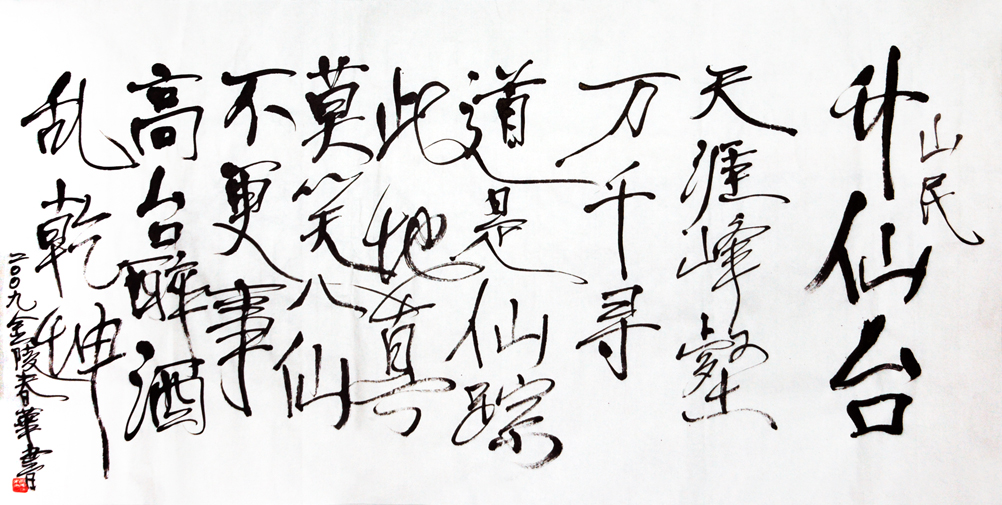 升仙台
山民
天涯峰壑
万千寻
道是仙踪
此地真
莫笑八仙
不更事
高台醉酒
乱乾坤
二〇〇九金陵春华书